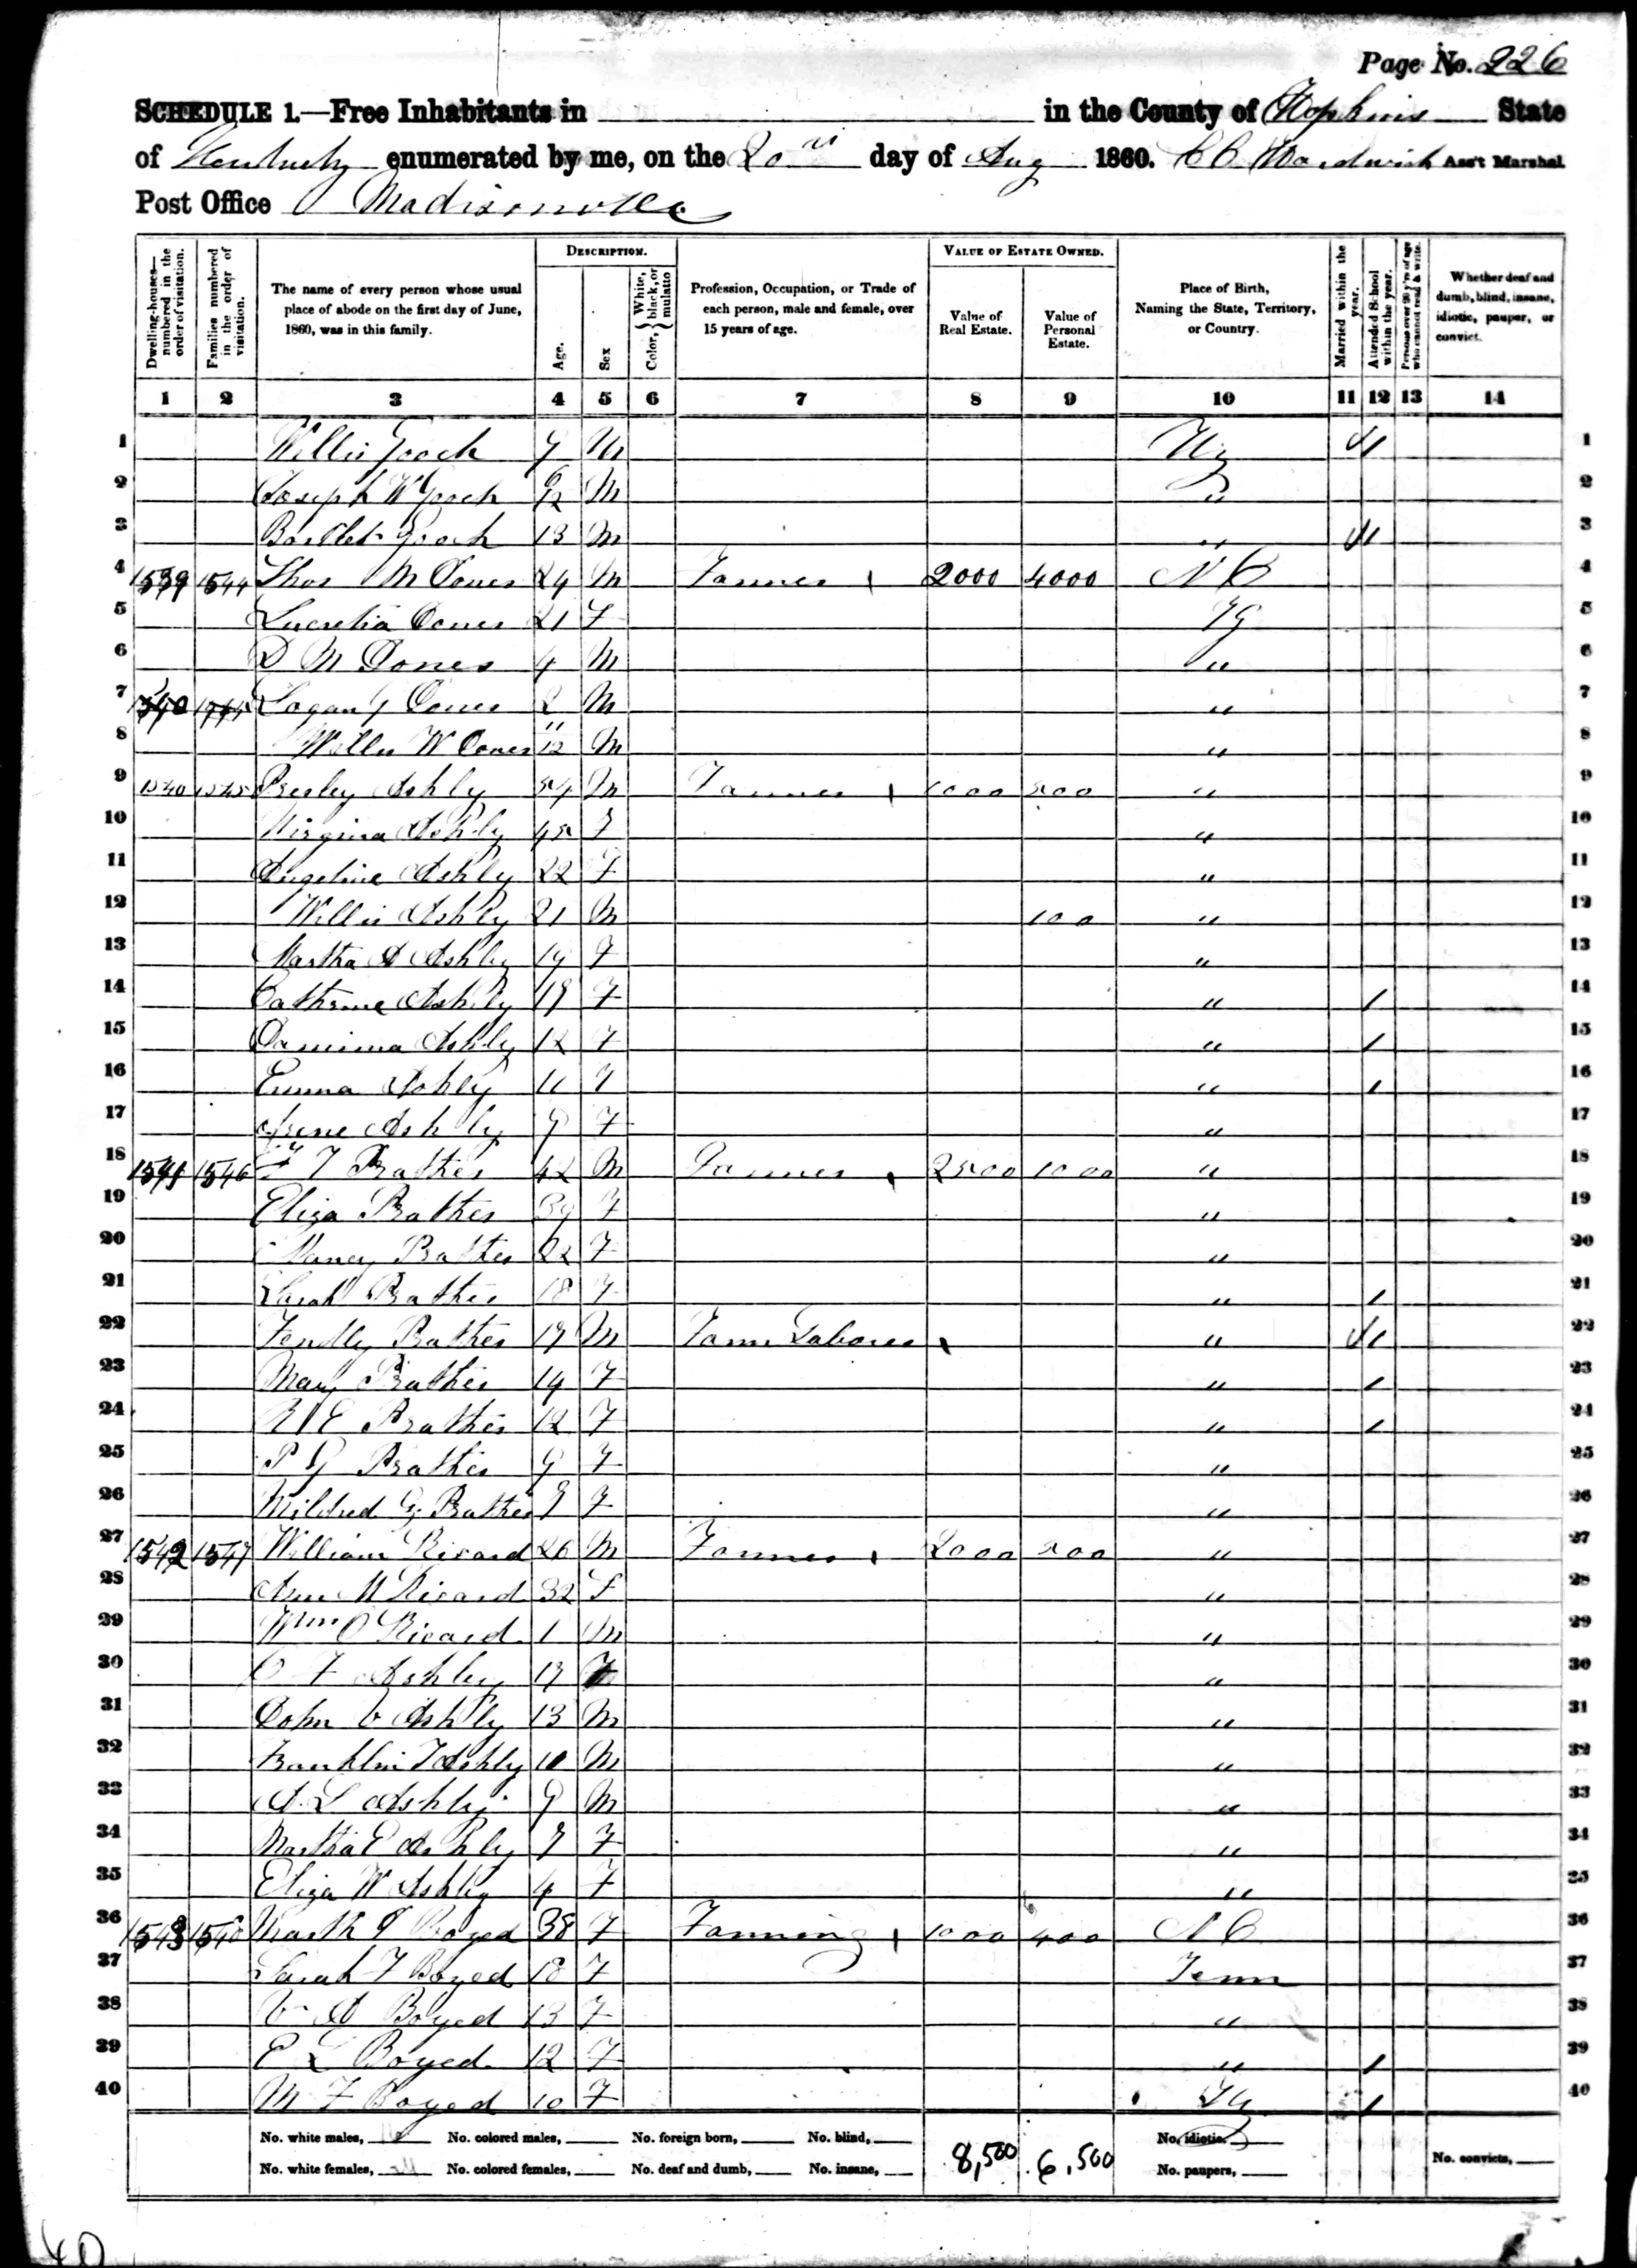 Page No. 226
SCHEDULE 1.—Free Inhabitants in in the County of Hopkins State
of Kentucky enumerated by me, on the 20th day of Aug 1860. Ass't Marshal
Post Office Madisonville
Dwelling-houses—numbered in the order of visitation.
Families numbered in the order of visitation.
The name of every person whose usual place of abode on the first day of June, 1860, was in this family.
DESCRIPTION.
Age.
Sex
Color, { White, black, or mulatto
Profession, Occupation, or Trade of each person, male and female, over 15 years of age.
VALUE OF ESTATE OWNED.
Value of Real Estate.
Value of Personal Estate.
Place of Birth, Naming the State, Territory, or Country.
Married within the year.
Attended School within the year.
Persons over 20 y'rs of age who cannot read & write.
Whether deaf and dumb, blind, insane, idiotic, pauper, or convict.
1 2 3 4 5 6 7 8 9 10 11 12 13 14
1 Willis Gooch M Ky 1
2 Joseph W Gooch M " 2
3 Bartlet Gooch 13 M " 3
4 1539 1544 Thos M Jones 24 M Farmer 2000 4000 N C 4
5 Lucretia Jones 21 F Ky 5
6 D M Jones 4 M " 6
7 Logan Jones 2 M " 7
8 Willis W Jones 11/12 M " 8
9 1540 1545 Presley Ashby 54 M Farmer 1000 500 " 9
10 Virginia Ashby 45 F " 10
11 Angeline Ashby 22 F " 11
12 Willis Ashby 21 M 100 " 12
13 Martha A Ashby 19 F " 13
14 Catherine Ashby F " / 14
15 Jamima Ashby 12 F " / 15
16 Emma Ashby 11 F " / 16
17 Irene Ashby 9 F " 17
18 1541 1546 Prather 42 M Farmer 2500 1000 " 18
19 Eliza Prather 39 F " 19
20 Nancy Prather 22 F " 20
21 Sarah Prather 18 F " / 21
22 Fendly Prather M Farm Laborer " 22
23 Mary Prather 14 F " / 23
24 Prather 12 F " / 24
25 P G Prather 9 F " 25
26 Mildred G Prather 7 F " 26
27 1542 1547 William Ricard 26 M Farmer 2000 500 " 27
28 Ann M Ricard 32 F " 28
29 Wm O Ricard 1 M " 29
30 Ashby " 30
31 John V Ashby 13 M " 31
32 Franklin T Ashby 10 M " 32
33 A L Ashby 9 M " 33
34 Martha E Ashby 7 F " 34
35 Eliza W Ashby 4 F " 35
36 1543 1548 Boyed 38 F Farming 1000 400 N C 36
37 Sarah F Boyed 18 F Tenn 37
38 V A Boyed 13 F " 38
39 E L Boyed 12 F " / 39
40 M F Boyed 10 F Ky / 40
No. white males, No. colored males, No. foreign born, No. blind, 8,500 6,500 No. idiotic,
No. white females, No. colored females, No. deaf and dumb, No. insane, No. paupers, No. convicts,
40